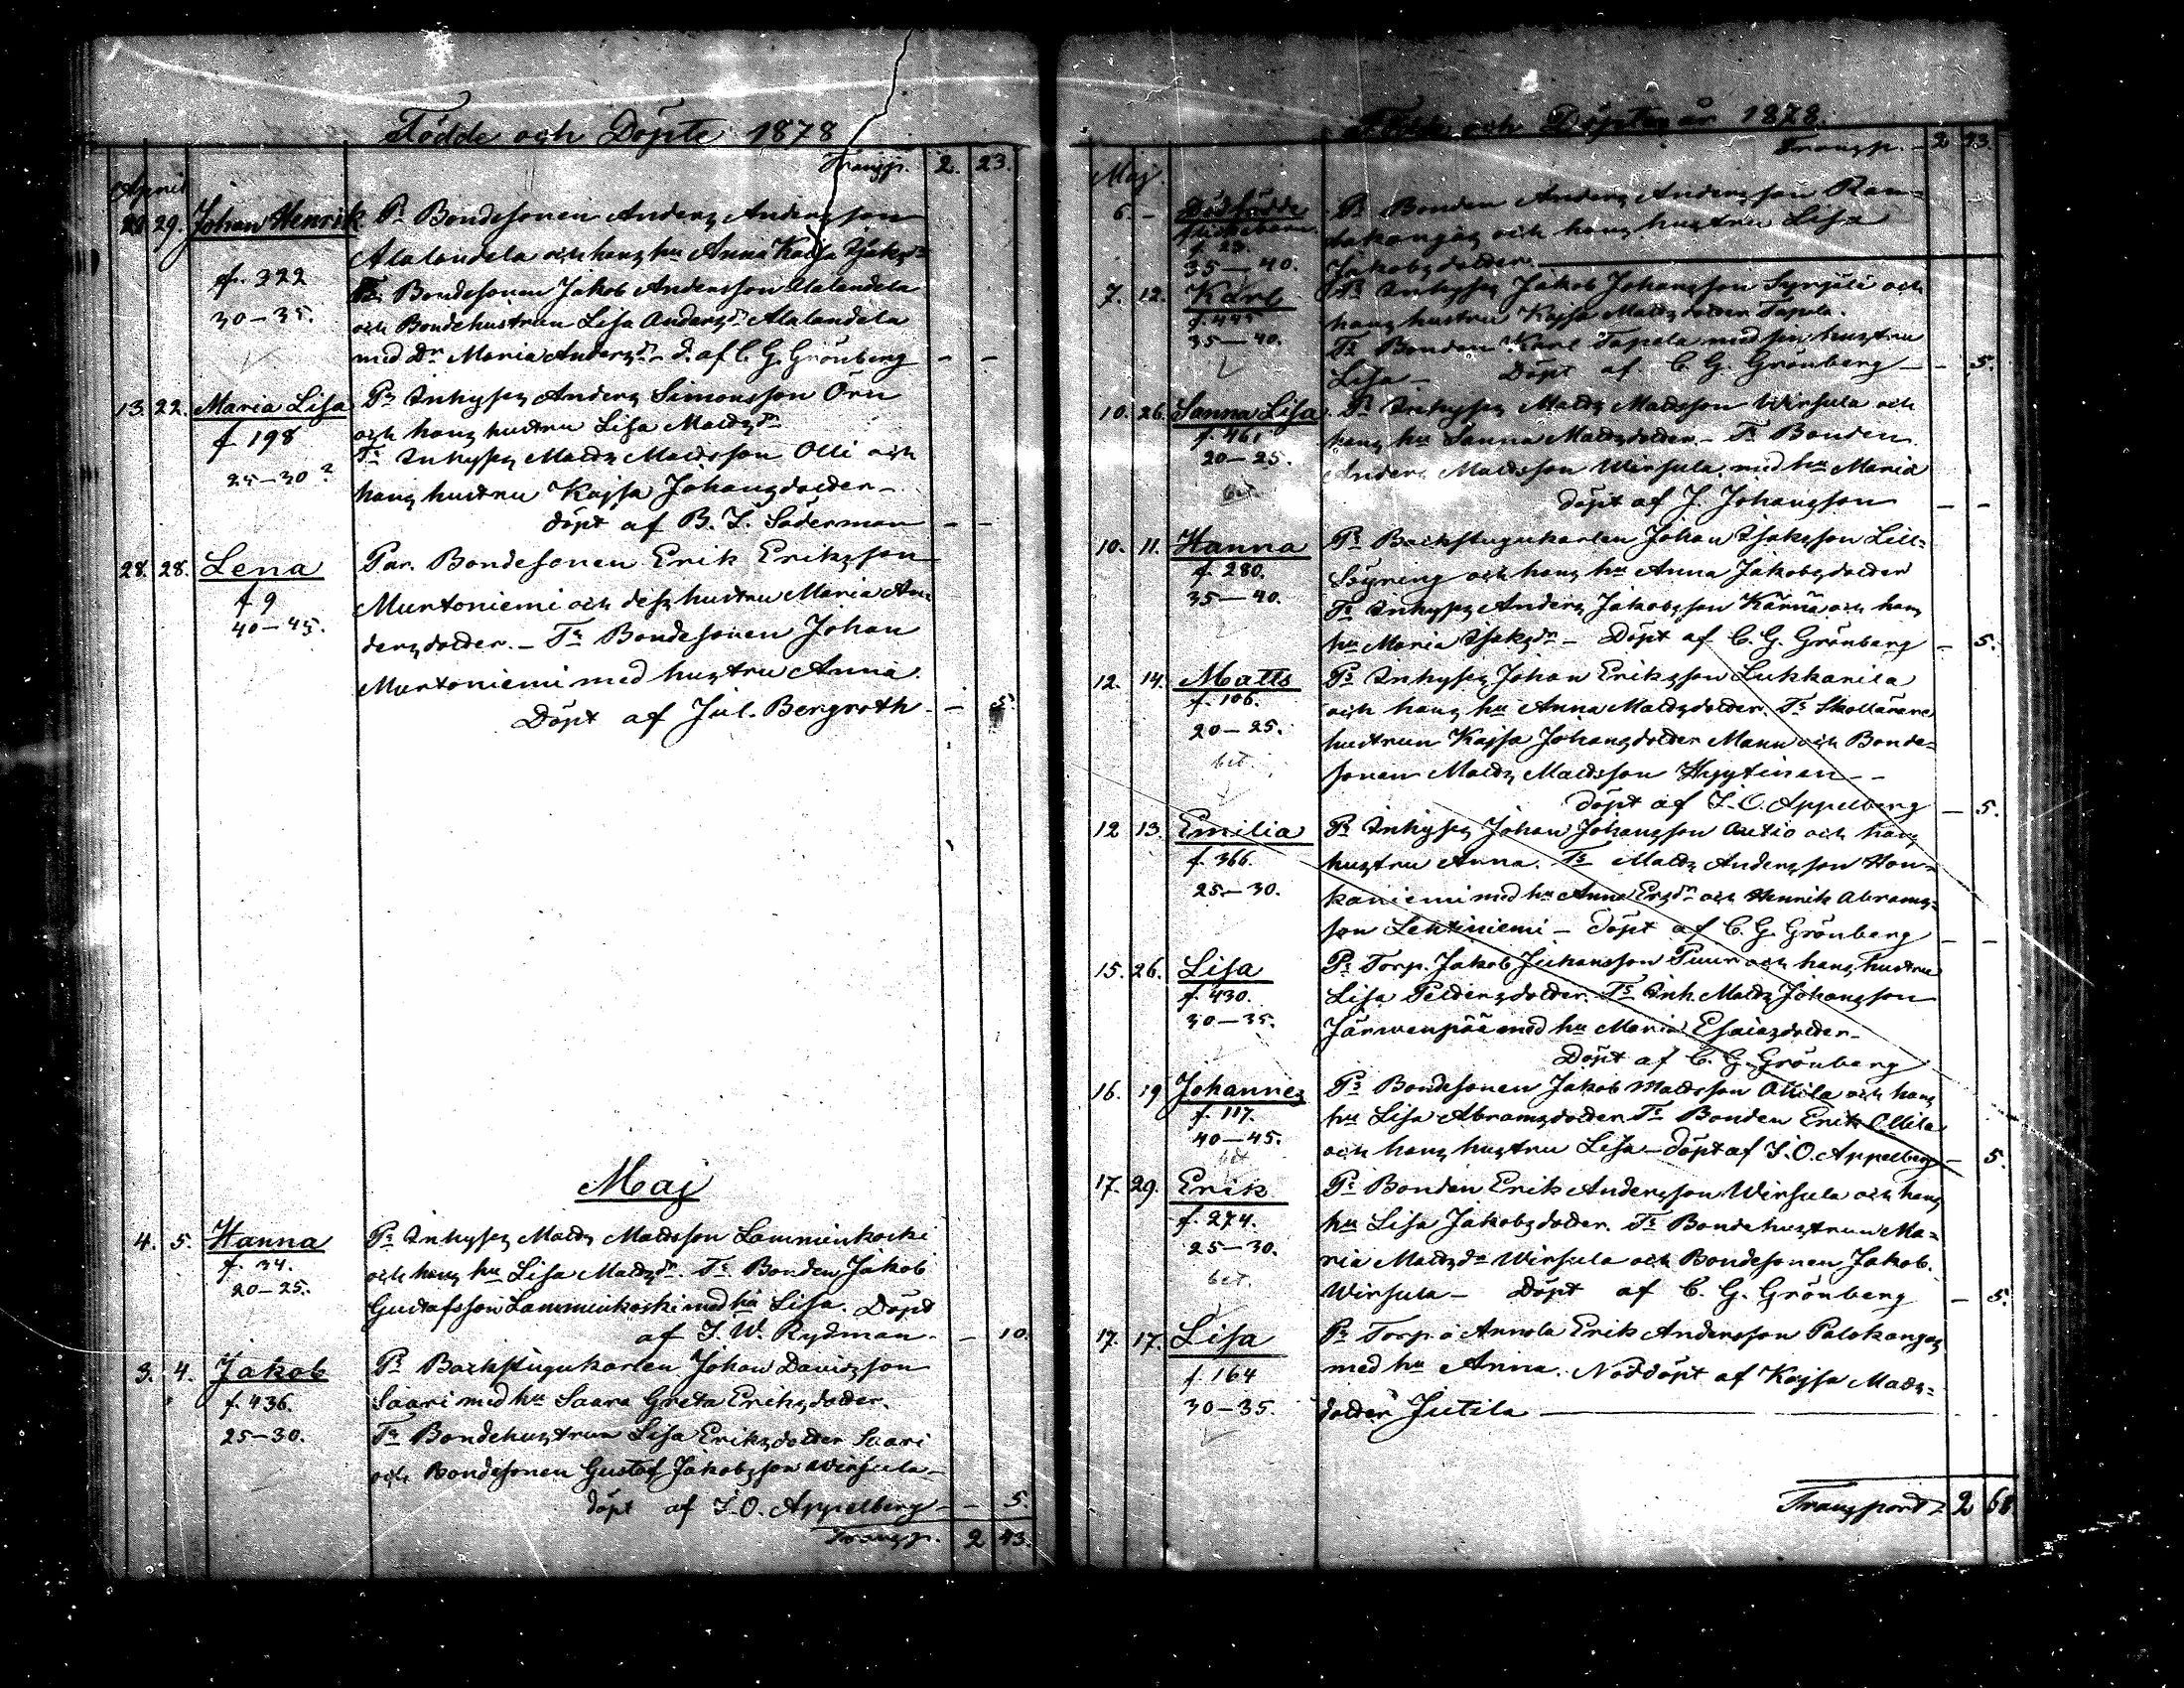 Födde och Döpte 1878
Transp. 2. 23.
April
29. Johan Henrik Pr Bondesonen Anders Andersson
Alalandela och hans hu Anna Kajsa
f. 322 Tr Bondesonen Jakob Andersson Alalandela
30–35. och Bondehustrun Lisa Andersdr Alalandela
med Dr Maria Andersdr – d. af C. G. Grönberg – –
13. 22. Maria Lisa Pr Inhyses Anders Simonsson Örn
f 198 och hans hustru Lisa Mattsdr
Tr Inhyses Matts Mattsson Olli och
25–30? hans hustru Kajsa Johansdotter –
döpt af B. I. Söderman – –
28. 28. Lena Par. Bondesonen Erik Eriksson
f 9 Murtoniemi och dess hustru Maria An-
40–45. dersdotter. – Tr Bondesonen Johan
Murtoniemi med hustru Anna.
Döpt af Jul. Bergroth – – 5.
Maj
4. 5. Hanna Pr Inhyses Matts Mattsson Lamminkoski
f. 34. och hans hu Lisa Mattsdr. Tr Bonden Jakob
20–25. Gustafsson Lamminkoski med hu Lisa. Döpt
af I. W. Rydman. – 10.
3. 4. Jakob Pr Backstugukarlen Johan Davidsson
f. 436. Saari med hu Saara Greta Eriksdotter.
25–30. Tr Bondehustrun Lisa Eriksdotter Saari
och Bondesonen Gustaf Jakobsson Wirsula –
döpt af I. O. Appelberg – – 5.
Transp. 2 43.
och Döpte år 1878.
Transp. – 2 43.
Maj.
6. – Dödfödde Pr Bonden Anders Andersson Ran-
flickebarn
f. 23. takangas och hans hustru Lisa
35–40. Jakobsdotter.
7. 12. Karl Pr Inhyses Jakob Johansson Syrjälä och
hans hustru Kajsa Mattsdotter Tapela.
35–40. Tr Bonden Karl Tapela med sin hustru
Lisa – Döpt af C. G. Grönberg – – 5.
10. 26. Sanna Lisa Pr Inhyses Matts Mattsson Wirsula och
f. 461 hans hu Sanna Mattsdotter – Tr Bonden
20–25. Anders Mattsson Wirsula med hu Maria
bet. döpt af J. Johansson – –
10. 11. Hanna Pr Backstugukarlen Johan Isaksson Lill-
f. 280. Söyring och hans hu Anna Jakobsdotter
35–40. Tr Inhyses Anders Jakobsson Kärnä och hans
hu Maria Isaksdr – Döpt af C. G. Grönberg – 5.
12. 14. Matts Pr Inhyses Johan Eriksson Lukkarila
f. 106. och hans hu Anna Mattsdotter. Tr Skollärare
20–25. hustrun Kajsa Johansdotter Mann och Bonde-
bet. sonen Matts Mattsson Hyytinen – –
döpt af I. O. Appelberg – 5.
12 13. Emilia Pr Inhyses Johan Johansson Autio och hans
f. 366. hustru Anna. Tr Matts Andersson Hon-
25–30. kaniemi med hu Anna Ersdr och Henrik Abrams-
son Lehtiniemi – döpt af C. G. Grönberg – –
15. 26. Lisa Pr Torp. Jakob Juhansson Tuuri och hans hustru
f. 430. Lisa Peldersdotter. Tr Inh. Matts Johansson
30–35. Järwenpää med hu Maria Esaiasdotter –
Döpt af C. G. Grönberg
16. 19 Johannes Pr Bondesonen Jakob Mattsson Ollila och hans
f. 117. hu Lisa Abramsdotter Tr Bonden Erik Ollila
40–45. och hans hustru Lisa – döpt af I. O. Appelberg – 5.
bet
17. 29. Erik Pr Bonden Erik Andersson Wirsula och hans
f. 274. hu Lisa Jakobsdotter. Tr Bondehustrun Ma-
25–30. ria Mattsdr Wirsula och Bondesonen Jakob
bet. Wirsula – Döpt af C. G. Grönberg – 5.
17. 17. Lisa Pr Torp. å Annola Erik Andersson Palokangas
f. 164 med hu Anna. Nöddöpt af Kajsa Matts-
30–35. dotter Jutila
Transport 2 68